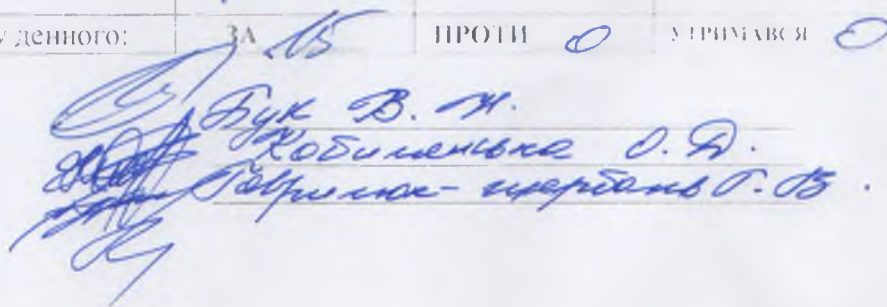 денного: ЗА 15 ПРОТИ 0 УТРИМАВСЯ 0
Бук В. М.
Кобиленська О. Д.
Гаврилюк-Щербань Г. В.